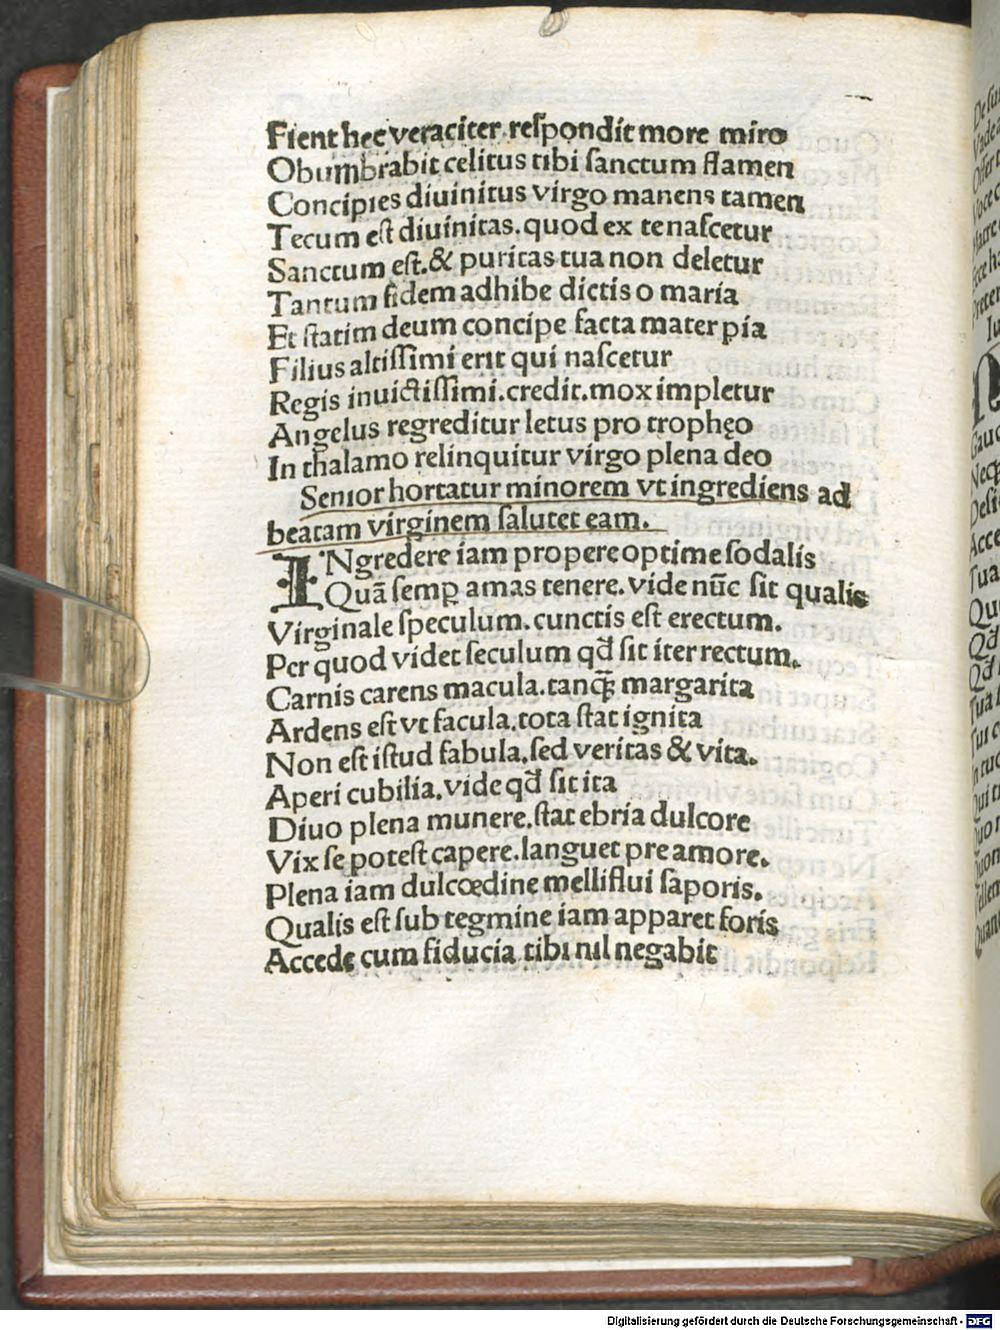 Fient hec veraciter reſpondit more miro
Obumbrabit celitus tibi ſanctum flamen
Concipies diuinitus virgo manens tamen
Tecum eſt diuinitas. quod ex te naſcetur
Sanctum eſt. & puritas tua non deletur
Tantum fidem adhibe dictis o maria
Et ſtatim deum concipe facta mater pia
Filius altiſſimi erit qui naſcetur
Regis inuictiſſimi. credit. mox impletur
Angelus regreditur letus pro trophęo
In thalamo relinquitur virgo plena deo
Senior hortatur minorem vt ingrediens ad
beatam virginem ſalutet eam.
INgredere iam propere optime ſodalis
Quā ſemꝑ amas tenere. vide nūc ſit qualis
Virginale ſpeculum. cunctis eſt erectum.
Per quod videt ſeculum qđ ſit iter rectum.
Carnis carens macula. tanq̄ꝫ margarita
Ardens eſt vt facula. tota ſtat ignita
Non eſt iſtud fabula. ſed veritas & vita.
Aperi cubilia. vide qđ ſit ita
Diuo plena munere. ſtat ebria dulcore
Vix ſe poteſt capere. languet pre amore.
Plena iam dulcœdine melliflui ſaporis.
Qualis eſt ſub tegmine iam apparet foris
Accede cum fiducia tibi nil negabit
Digitalisierung gefördert durch die Deutsche Forschungsgemeinschaft - DFG